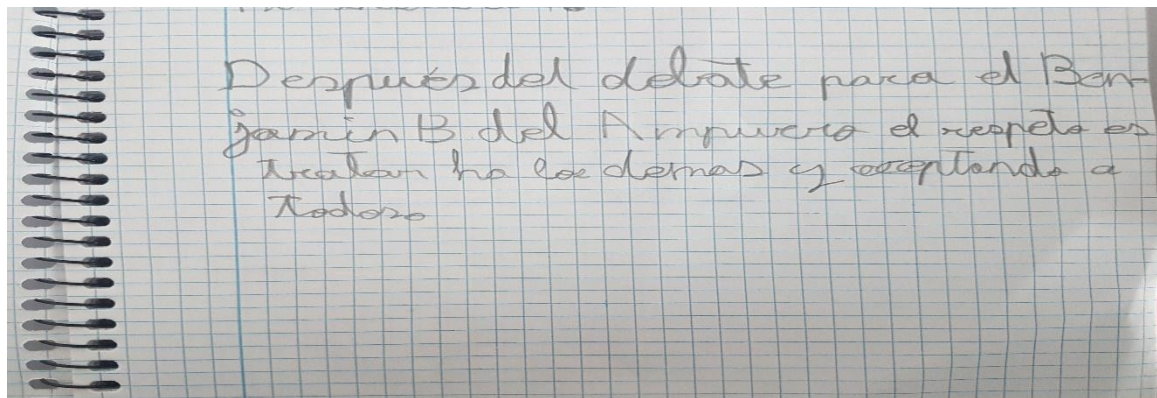 Después del debate para el Ben-
jamin B del Ampuero el respeto es
tratar ha los demas y aceptando a
todos.